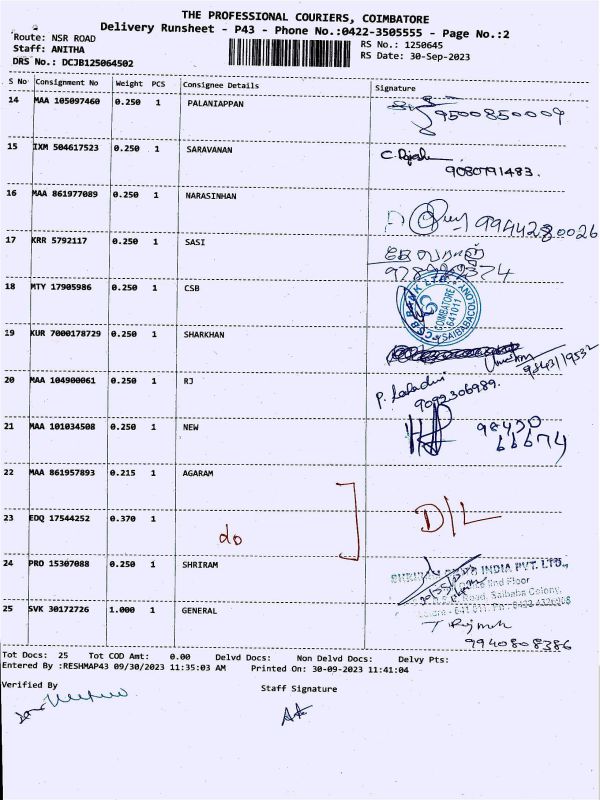 THE PROFESSIONAL COURIERS, COIMBATORE
Delivery Runsheet - P43 - Phone No.:0422-3505555 - Page No.:2
Route: NSR ROAD
RS No.: 1250645
Staff: ANITHA
RS Date: 30-Sep-2023
DRS No.: DCJB125064502
S No Consignment No Weight PCS Consignee Details Signature
14 MAA 105097460 0.250 1 PALANIAPPAN
9500850009
15 IXM 504617523 0.250 1 SARAVANAN C. Rajesh
9080791483.
16 MAA 861977089 0.250 1 NARASINHAN
9944280026
17 KRR 5792117 0.250 1 SASI
18 MTY 17905986 0.250 1 CSB
CSB BANK LTD. COIMBATORE 641011 SAIBABA COLONY
19 KUR 7000178729 0.250 1 SHARKHAN
9843119532
20 MAA 104900061 0.250 1 RJ
9092306989.
21 MAA 101034508 0.250 1 NEW 98430
66674
22 MAA 861957893 0.215 1 AGARAM
23 EDQ 17544252 0.370 1 do D/L
24 PRO 15307088 0.250 1 SHRIRAM
INDIA PVT. LTD.,
2nd Floor
Road, Saibaba Colony,
25 SVK 30172726 1.000 1 GENERAL
9940808386
Tot Docs: 25 Tot COD Amt: 0.00 Delvd Docs: Non Delvd Docs: Delvy Pts:
Entered By :RESHMAP43 09/30/2023 11:35:03 AM Printed On: 30-09-2023 11:41:04
Verified By Staff Signature